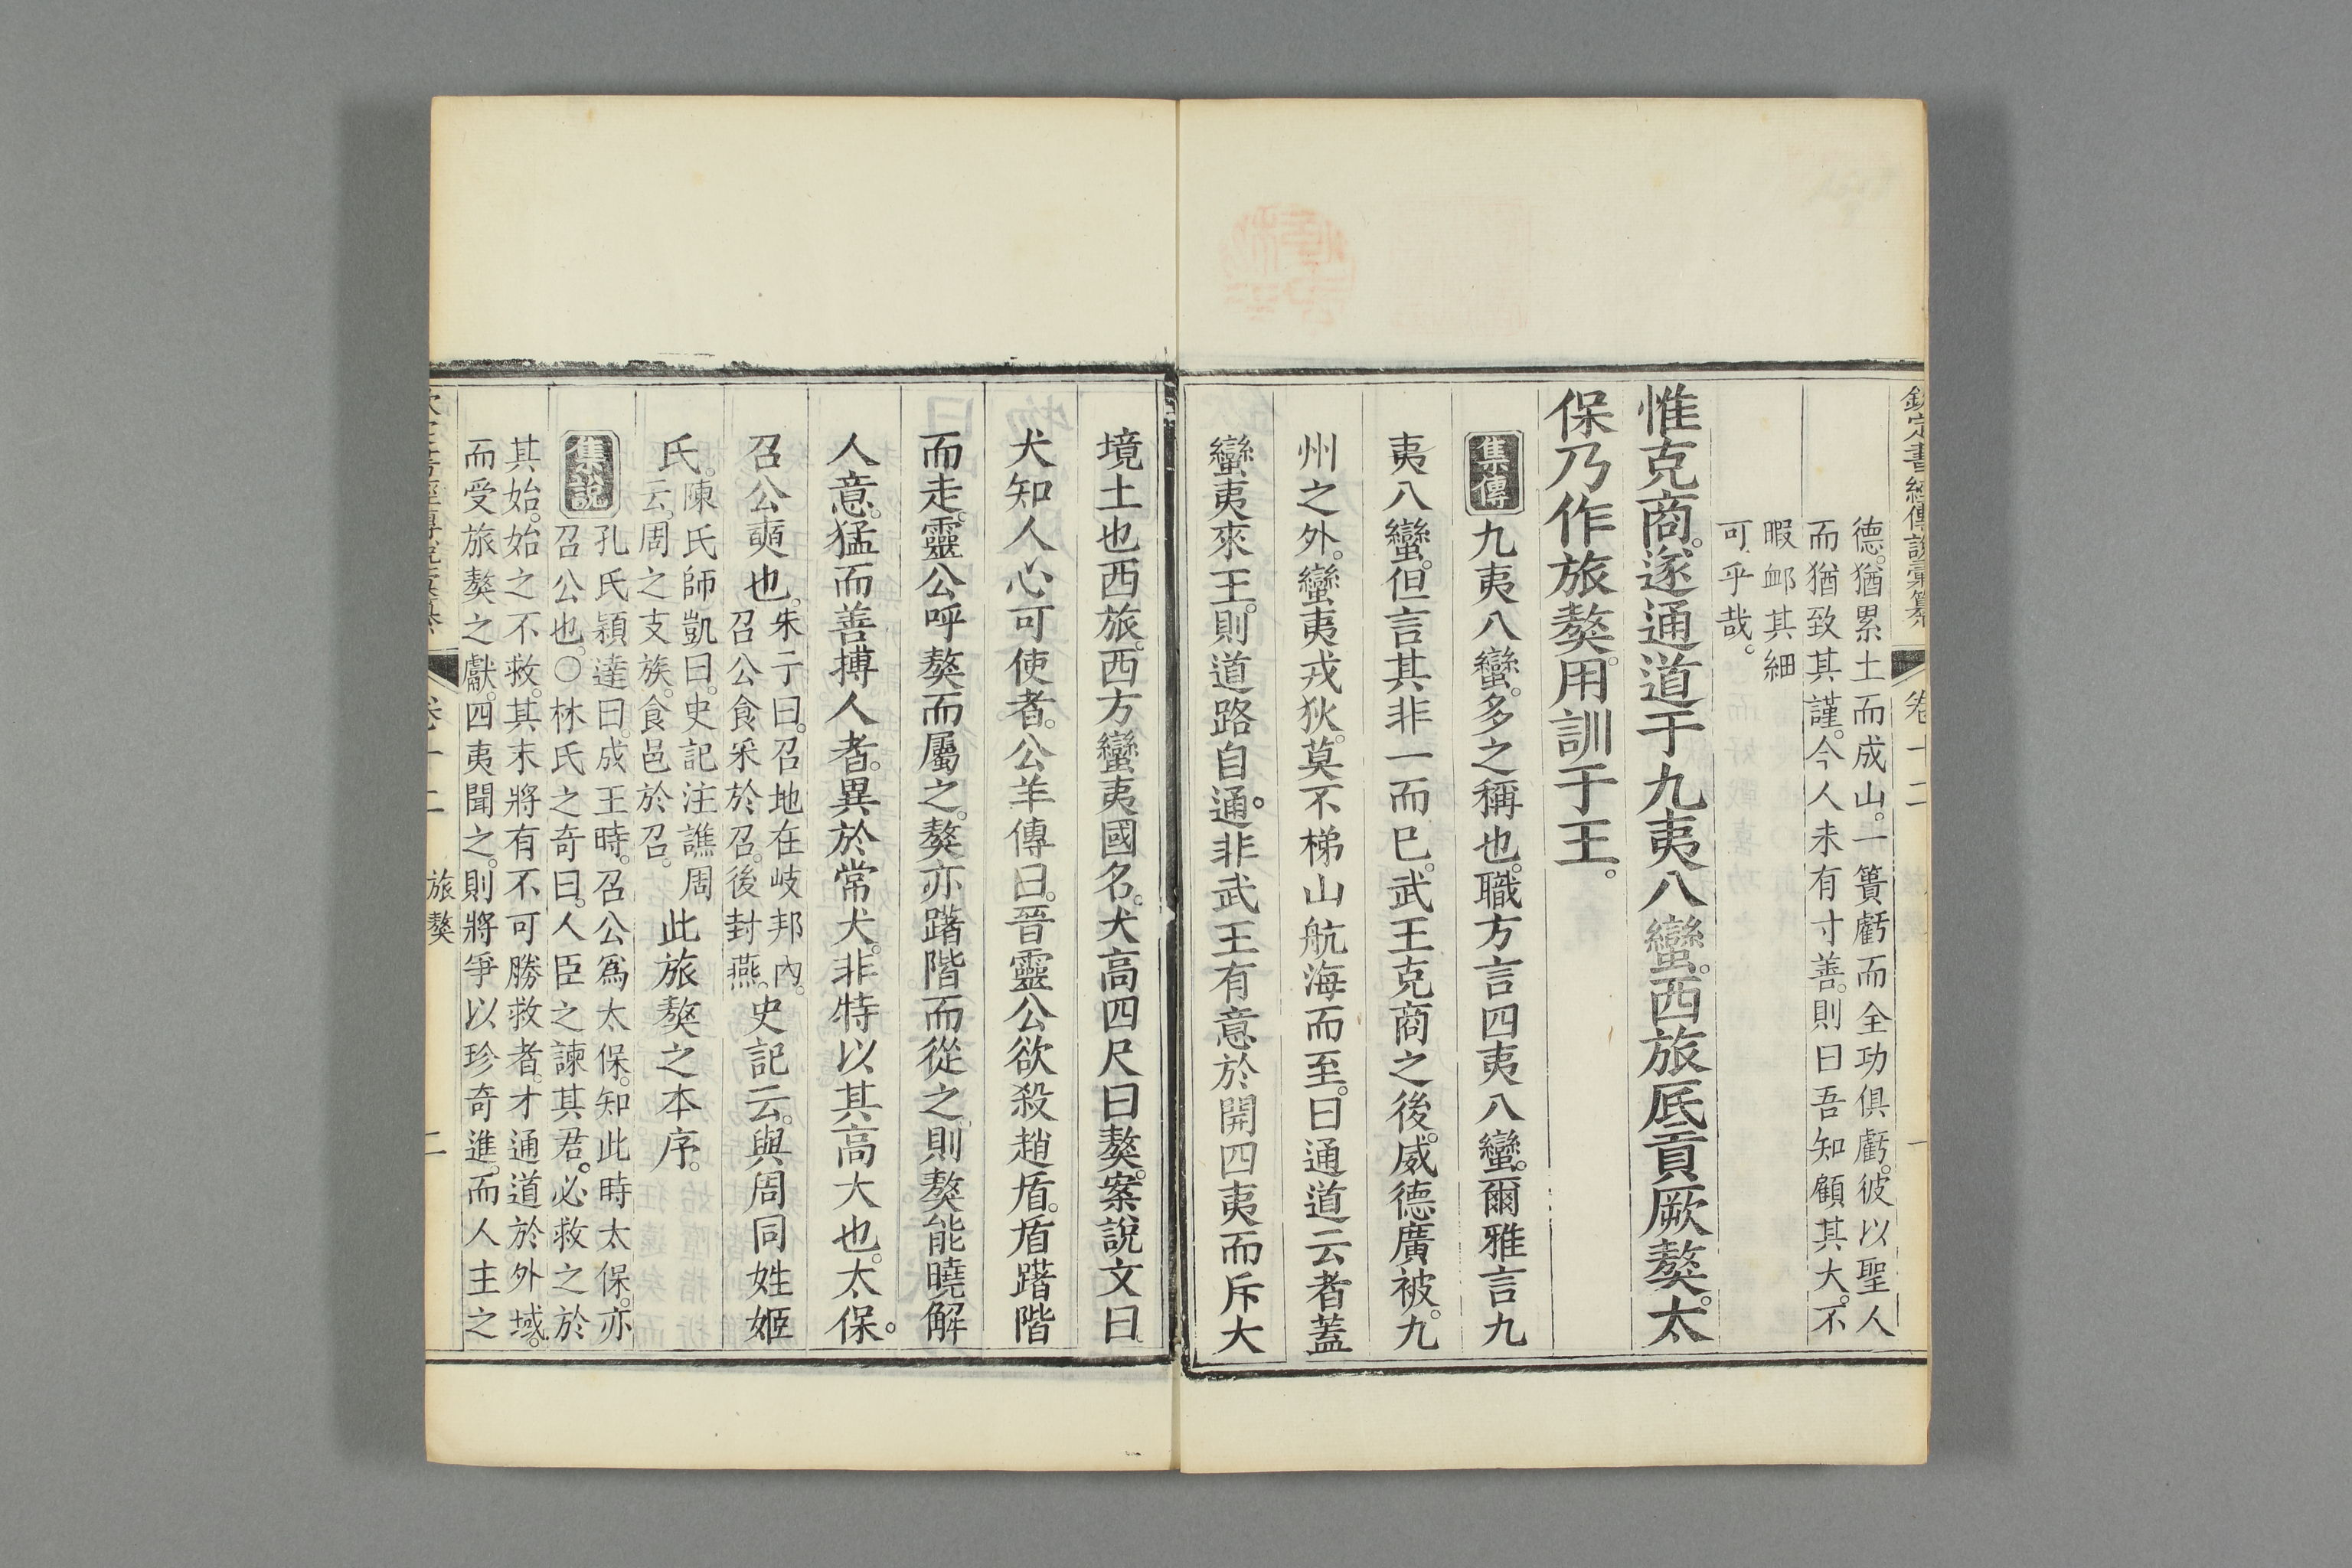 欽定書經傳說彙纂 卷十二
德。猶累土而成山。一簣虧而全功俱虧。彼以聖人
而猶致其謹。今人未有寸善。則曰吾知顧其大。不
暇䘏其細
可乎哉。
惟克商。遂通道于九夷八蠻。西旅厎貢厥獒。太
保乃作旅獒。用訓于王。
集傳 九夷八蠻。多之稱也。職方言四夷八蠻。爾雅言九
夷八蠻。但言其非一而已。武王克商之後。威德廣被。九
州之外。蠻夷戎狄。莫不梯山航海而至。曰通道云者。蓋
蠻夷來王。則道路自通。非武王有意於開四夷而斥大
境土也。西旅。西方蠻夷國名。犬高四尺曰獒。案說文曰
犬知人心可使者。公羊傳曰。晉靈公欲殺趙盾。盾躇階
而走。靈公呼獒而屬之。獒亦躇階而從之。則獒能曉解
人意。猛而善搏人者。異於常犬。非特以其高大也。太保。
召公奭也。
朱子曰。召地在岐邦內。
召公食采於召。後封燕。
史記云。與周同姓姬
氏。
陳氏師凱曰。史記注譙周
云。周之支族。食邑於召。
此旅獒之本序。
集說
孔氏穎達曰。成王時。召公爲太保。知此時太保。亦
召公也。○林氏之奇曰。人臣之諫其君。必救之於
其始。始之不救。其末將有不可勝救者。才通道於外域。
而受旅獒之獻。四夷聞之。則將爭以珍奇進。而人主之
欽定書經傳說彙纂 卷十二 旅獒 二